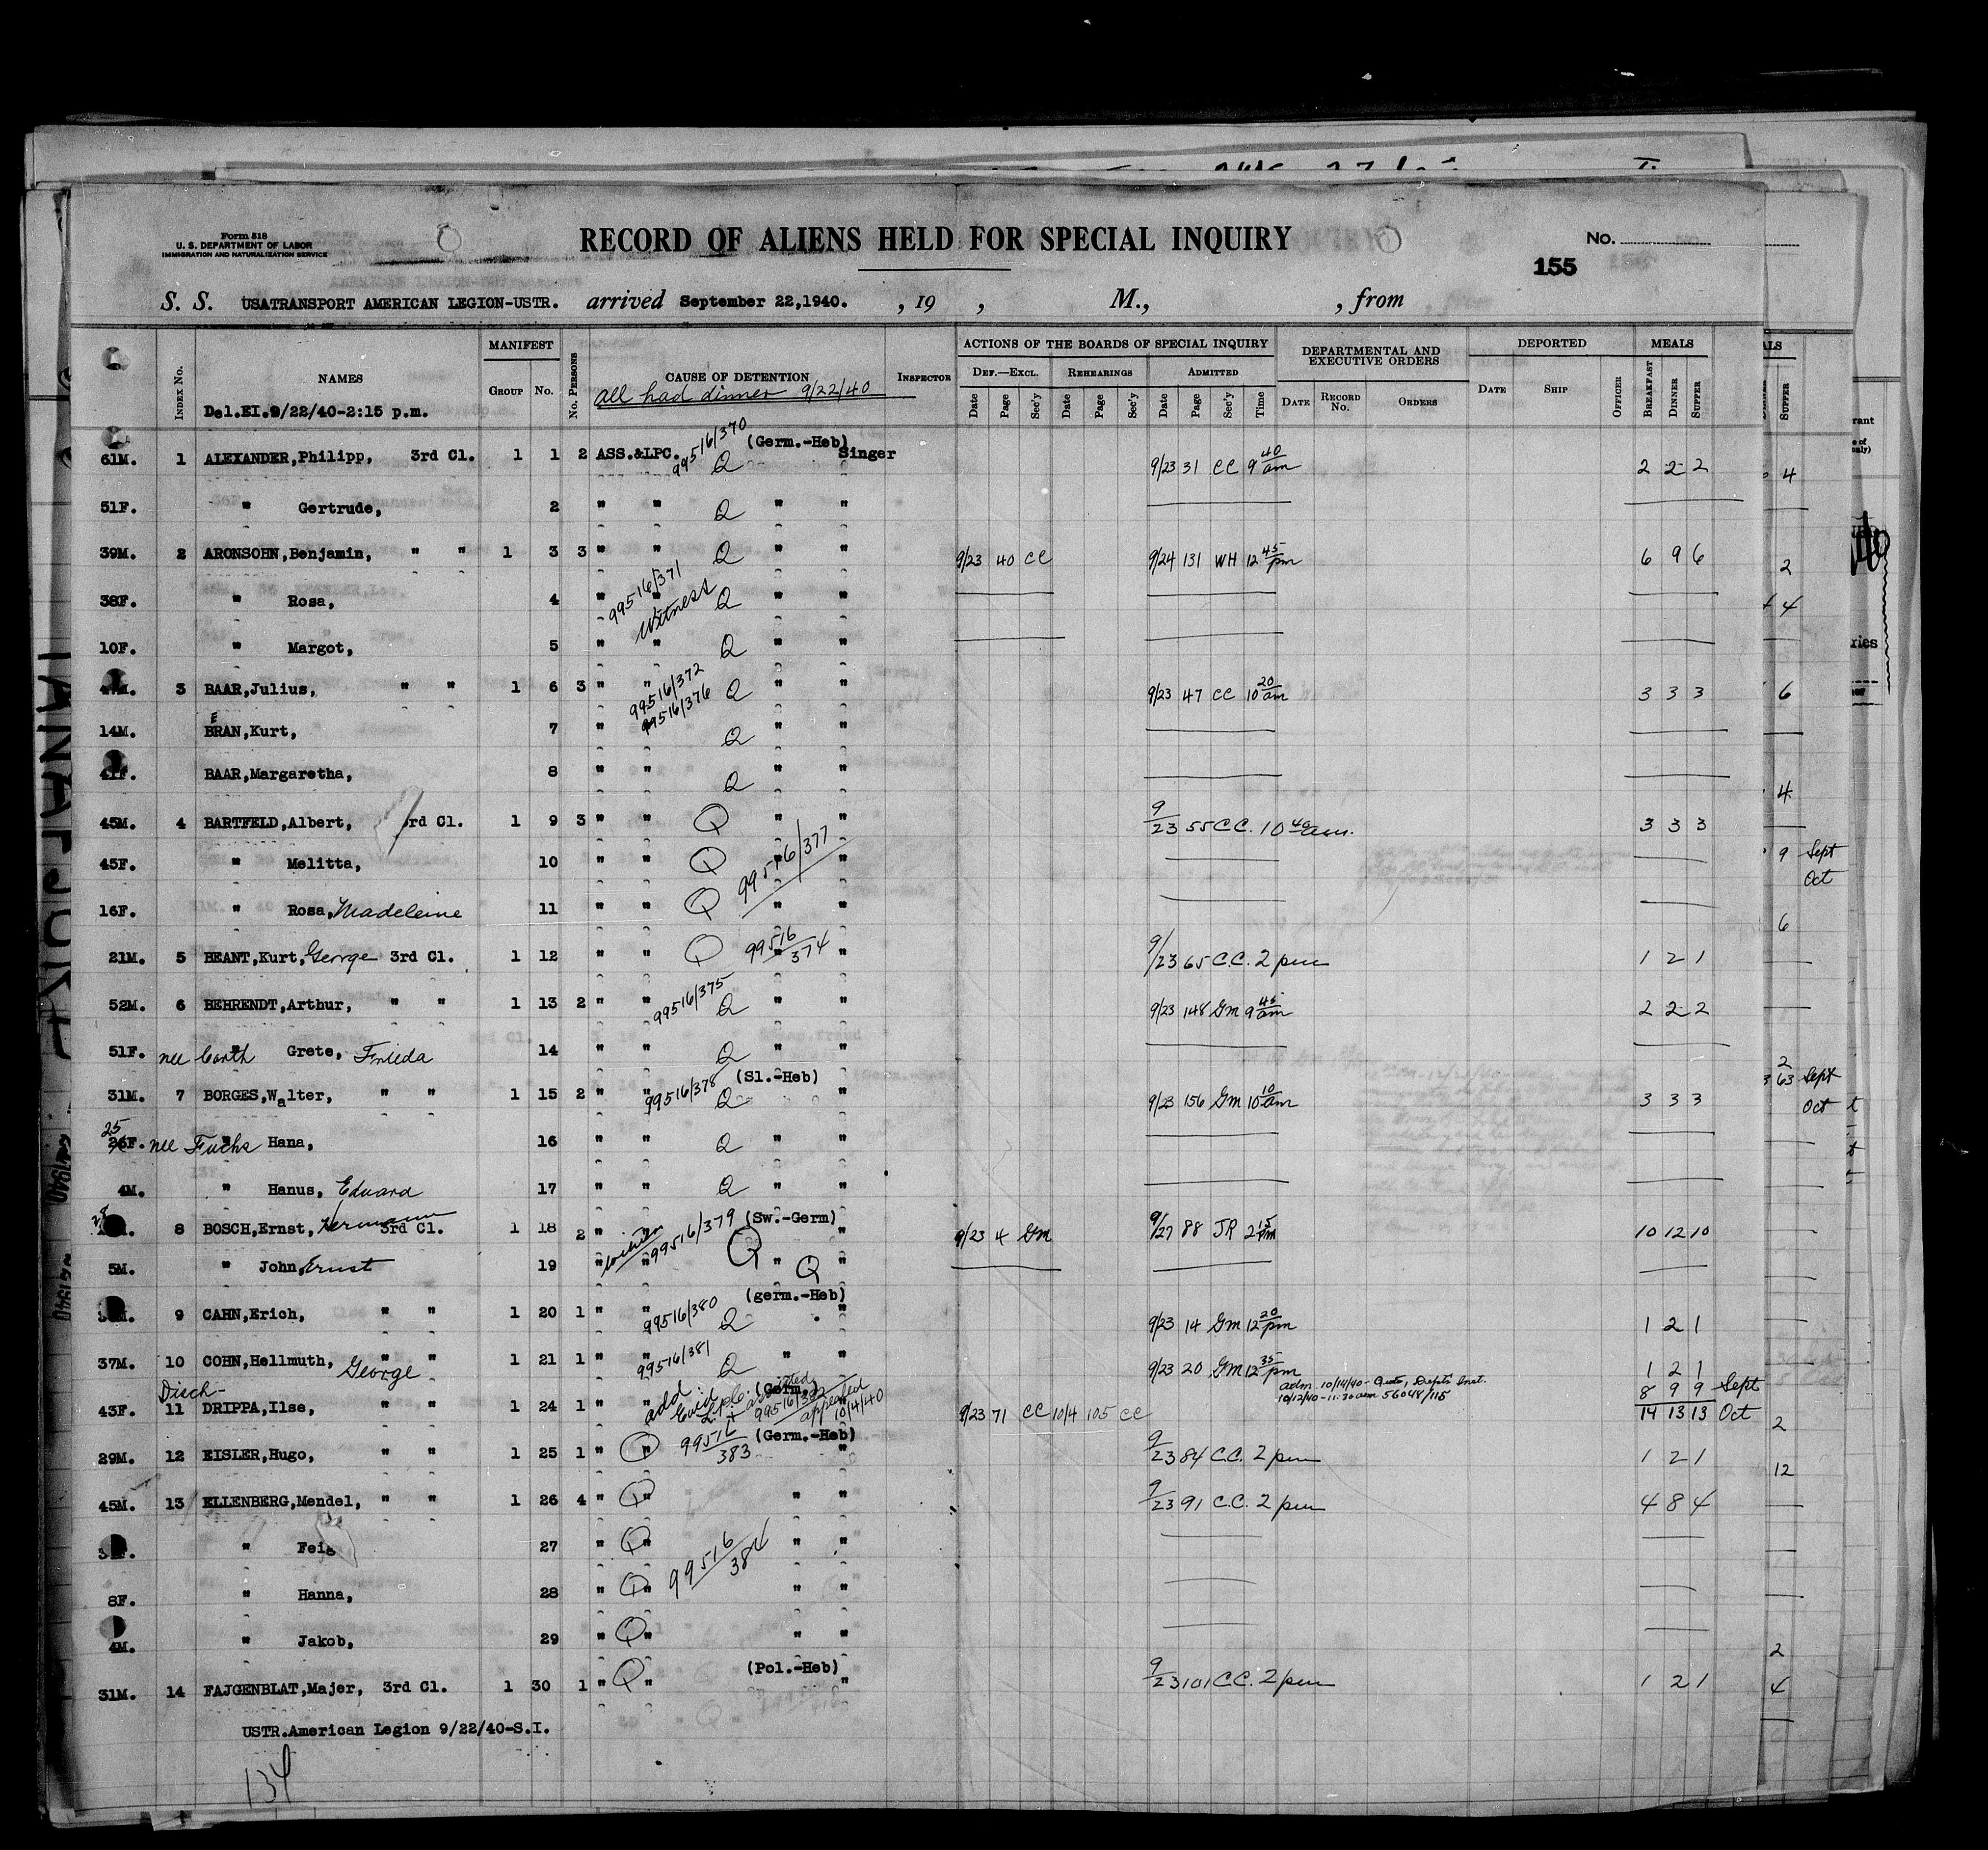 Form 518
U. S. DEPARTMENT OF LABOR
IMMIGRATION AND NATURALIZATION SERVICE
RECORD OF ALIENS HELD FOR SPECIAL INQUIRY
No.
155
S. S. USATRANSPORT AMERICAN LEGION-USTR. arrived September 22,1940. , 19 , M., , from
INDEX No. NAMES MANIFEST GROUP No. No. PERSONS CAUSE OF DETENTION INSPECTOR ACTIONS OF THE BOARDS OF SPECIAL INQUIRY DEPARTMENTAL AND EXECUTIVE ORDERS DEPORTED MEALS
DEF.—EXCL. REHEARINGS ADMITTED
Date Page Sec'y Date Page Sec'y Date Page Sec'y Time DATE RECORD No. ORDERS DATE SHIP OFFICER BREAKFAST DINNER SUPPER
Del.EI.9/22/40-2:15 p.m. all had dinner 9/22/40
61M. 1 ALEXANDER,Philipp, 3rd Cl. 1 1 2 ASS.&LPC. 99516/370 Q (Germ.-Heb) Singer 9/23 31 CC 9 40 am 2 2 2
51F. " Gertrude, 2 " " Q " "
39M. 2 ARONSOHN,Benjamin, " " 1 3 3 " " Q " " 9/23 40 CC 9/24 131 WH 12 45 pm 6 9 6
38F. " Rosa, 4 " " 99516/371 Witness Q " "
10F. " Margot, 5 " " Q " "
47M. 3 BAAR,Julius, " " 1 6 3 " " 99516/372 Q " " 9/23 47 CC 10 20 am 3 3 3
14M. BRAN,Kurt, E 7 " " 99516/376 Q " "
41F. BAAR,Margaretha, 8 " " Q " "
45M. 4 BARTFELD,Albert, 3rd Cl. 1 9 3 " " Q " " 9/23 55 C.C. 10 40 am. 3 3 3
45F. " Melitta, 10 " " Q 99516/377 "
16F. " Rosa, Madeleine 11 " " Q " "
21M. 5 BEANT,Kurt, George 3rd Cl. 1 12 " " Q 99516/374 " 9/23 65 C.C. 2 pm 1 2 1
52M. 6 BEHRENDT,Arthur, " " 1 13 2 " " 99516/375 Q " " 9/23 148 Gm 9 45 am 2 2 2
51F. nee " Grete, Frieda 14 " " Q " "
31M. 7 BORGES,Walter, " " 1 15 2 " 99516/378 Q (Sl.-Heb) 9/23 156 Gm 10 10 am 3 3 3
25 26F. nee Fuchs " Hana, 16 " " Q " "
4M. " Hanus, Eduard 17 " " Q " "
8 BOSCH,Ernst, Hermann 3rd Cl. 1 18 2 " 99516/379 Q (Sw.-Germ) " 9/23 4 Gm 9/27 88 JR 2 15 pm 10 12 10
5M. " John, Ernst 19 " " " Q "
9 CAHN,Erich, " " 1 20 1 " " 99516/380 Q (germ.-Heb) " 9/23 14 Gm 12 20 pm 1 2 1
37M. 10 COHN,Hellmuth, George " " 1 21 1 " " 99516/381 Q " " 9/23 20 Gm 12 35 pm 1 2 1
adm. 10/14/40- 8 9 9 Sept
10/12/40-11:30 am 56048/115
Disch-
43F. 11 DRIPPA,Ilse, " " 1 24 1 " add (Germ.) 99516/382 appealed 10/4/40 9/23 71 CC 10/4 105 CC 14 13 13 Oct
29M. 12 EISLER,Hugo, " " 1 25 1 " Q " 99516/383 (Germ.-Heb) " 9/23 84 C.C. 2 pm 1 2 1
45M. 13 ELLENBERG,Mendel, " " 1 26 4 " Q " " " 9/23 91 C.C. 2 pm 4 8 4
" Feig 27 " Q " " "
99516/384
8F. " Hanna, 28 " Q " " "
4M. " Jakob, 29 " Q " " "
31M. 14 FAJGENBLAT,Majer, 3rd Cl. 1 30 1 " Q " (Pol.-Heb) " 9/23 101 C.C. 2 pm 1 2 1
USTR.American Legion 9/22/40-S.I.
134